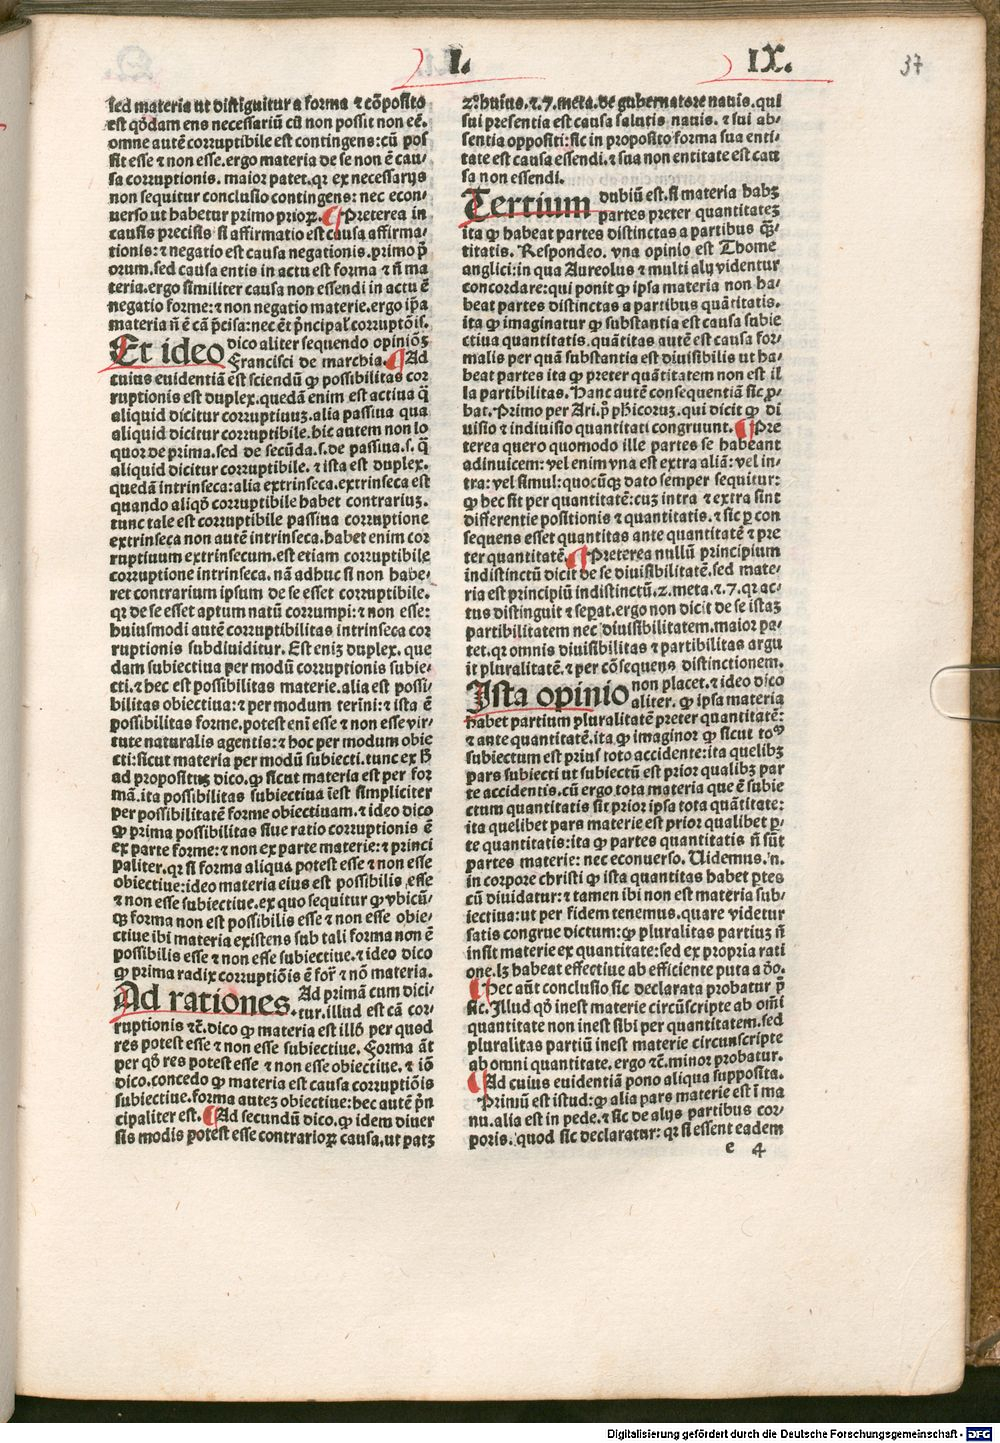 I.
IX.
37
sed materia ut distiguitur a forma ⁊ cõposito
est qõdam ens necessariũ cũ non possit non eẽ.
omne autẽ corruptibile est contingens: cũ pos
sit esse ⁊ non esse. ergo materia de se non ẽ cau⸗
sa corruptionis. maior patet. qr ex necessarijs
non sequitur conclusio contingens: nec econ⸗
uerso ut habetur primo prioꝝ. ¶ Preterea in
causis precisis si affirmatio est causa affirma⸗
tionis: ⁊ negatio est causa negationis. primo p̃
orum. sed causa entis in actu est forma ⁊ ñ ma
teria. ergo similiter causa non essendi in actu ẽ
negatio forme: ⁊ non negatio materie. ergo ip̃a
materia ñ ẽ cã p̃cisa: nec ẽt p̃ncipal' corruptõis.
Et ideo dico aliter sequendo opinioꝫ
Francisci de marchia. ¶ Ad
cuius euidentiã est sciendũ ꝙ possibilitas cor
ruptionis est duplex. quedã enim est actiua q̃
aliquid dicitur corruptiuuꝫ. alia passiua qua
aliquid dicitur corruptibile. hic autem non lo
quor de prima. sed de secũda. s. de passiua. s. q̃
aliquid dicitur corruptibile. ⁊ ista est duplex.
quedã intrinseca: alia extrinseca. extrinseca est
quando aliqõ corruptibile habet contrariuꝫ.
tunc tale est corruptibile passiua corruptione
extrinseca non autẽ intrinseca. habet enim cor
ruptiuum extrinsecum. est etiam corruptibile
corruptione intrinseca. nã adhuc si non habe⸗
ret contrarium ipsum de se esset corruptibile.
qr de se esset aptum natũ corrumpi: ⁊ non esse:
huiusmodi autẽ corruptibilitas intrinseca cor
ruptionis subdiuiditur. Est eniꝫ duplex. que
dam subiectiua per modũ corruptionis subie⸗
cti. ⁊ hec est possibilitas materie. alia est possi⸗
bilitas obiectiua: ⁊ per modum termini: ⁊ ista ẽ
possibilitas forme. potest enĩ esse ⁊ non esse vir⸗
tute naturalis agentis: ⁊ hoc per modum obie
cti: sicut materia per modũ subiecti. tunc ex ħ
ad proposituꝫ dico. ꝙ sicut materia est per for
mã. ita possibilitas subiectiua ĩest simpliciter
per possibilitatẽ forme obiectiuam. ⁊ ideo dico
ꝙ prima possibilitas siue ratio corruptionis ẽ
ex parte forme: ⁊ non ex parte materie: ⁊ princi
paliter. qr si forma aliqua potest esse ⁊ non esse
obiectiue: ideo materia eius est possibilis esse
⁊ non esse subiectiue. ex quo sequitur ꝙ vbicũ⸗
qꝫ forma non est possibilis esse ⁊ non esse obie⸗
ctiue ibi materia existens sub tali forma non ẽ
possibilis esse ⁊ non esse subiectiue. ⁊ ideo dico
ꝙ prima radix corruptiõis ẽ for̃ ⁊ nõ materia.
Ad rationes. Ad primã cum dici⸗
tur. illud est cã cor⸗
ruptionis ⁊c̃. dico ꝙ materia est illõ per quod
res potest esse ⁊ non esse subiectiue. Forma ãt
per qõ res potest esse ⁊ non esse obiectiue. ⁊ iõ
dico. concedo ꝙ materia est causa corruptiõis
subiectiue. forma auteꝫ obiectiue: hec autẽ p̃n
cipaliter est. ¶ Ad secundũ dico. ꝙ idem diuer
sis modis potest esse contrarioꝝ causa. ut patꝫ
2.° huius. ⁊. 7. meta. de gubernatore nauis. qui
sui presentia est causa salutis nauis. ⁊ sui ab⸗
sentia oppositi: sic in proposito forma sua enti⸗
tate est causa essendi. ⁊ sua non entitate est cau
sa non essendi.
Tertium dubiũ est. si materia habꝫ
partes preter quantitateꝫ
ita ꝙ habeat partes distinctas a partibus quã⸗
titatis. Respondeo. vna opinio est Thome
anglici: in qua Aureolus ⁊ multi alij videntur
concordare: qui ponit ꝙ ipsa materia non ha⸗
beat partes distinctas a partibus quãtitatis.
ita ꝙ imaginatur ꝙ substantia est causa subie
ctiua quantitatis. quãtitas autẽ est causa for⸗
malis per quã substantia est diuisibilis ut ha⸗
beat partes ita ꝙ preter quãtitatem non est il
la partibilitas. Hanc autẽ consequentiã sic ꝓ⸗
bat. Primo per Ari. p̃ phicoruꝫ. qui dicit ꝙ di
uisio ⁊ indiuisio quantitati congruunt. ¶ Pre
terea quero quomodo ille partes se habeant
adinuicem: vel enim vna est extra aliã: vel in⸗
tra: vel simul: quocũqꝫ dato semper sequitur:
ꝙ hec sit per quantitatẽ: cuꝫ intra ⁊ extra sint
differentie positionis ⁊ quantitatis. ⁊ sic ꝑ con
sequens esset quantitas ante quantitatẽ ⁊ pre
ter quantitatẽ. ¶ Preterea nullũ principium
indistinctũ dicit de se diuisibilitatẽ. sed mate⸗
ria est principiũ indistinctũ. 2. meta. ⁊. 7. qr ac⸗
tus distinguit ⁊ seꝑat. ergo non dicit de se istaꝫ
partibilitatem nec diuisibilitatem. maior pa⸗
tet. qr omnis diuisibilitas ⁊ partibilitas argu
it pluralitatẽ. ⁊ per cõsequens distinctionem.
Ista opinio non placet. ⁊ ideo dico
aliter. ꝙ ipsa materia
habet partium pluralitatẽ preter quantitatẽ:
⁊ ante quantitatẽ. ita ꝙ imaginor ꝙ sicut totꝰ
subiectum est prius toto accidente: ita quelibꝫ
pars subiecti ut subiectũ est prior qualibꝫ par
te accidentis. cũ ergo tota materia que ẽ subie
ctum quantitatis sit prior ipsa tota quãtitate:
ita quelibet pars materie est prior qualibet ꝑ⸗
te quantitatis: ita ꝙ partes quantitatis ñ sũt
partes materie: nec econuerso. Uidemus. n.
in corpore christi ꝙ ista quantitas habet ꝑtes
cũ diuidatur: ⁊ tamen ibi non est materia sub⸗
iectiua: ut per fidem tenemus. quare videtur
satis congrue dictum: ꝙ pluralitas partiuꝫ ñ
insit materie ex quantitate: sed ex propria rati
one. lꝫ habeat effectiue ab efficiente puta a deo.
¶ Hec aũt conclusio sic declarata probatur p̃
sic. Illud qõ inest materie circũscripte ab omĩ
quantitate non inest sibi per quantitatem. sed
pluralitas partiũ inest materie circunscripte
ab omni quantitate. ergo ⁊c̃. minor probatur.
¶ Ad cuius euidentiã pono aliqua supposita.
Primũ est istud: ꝙ alia pars materie est ĩ ma
nu. alia est in pede. ⁊ sic de alijs partibus cor⸗
poris. quod sic declaratur: qr si essent eadem
e 4
Digitalisierung gefördert durch die Deutsche Forschungsgemeinschaft - DFG